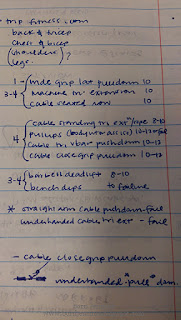 * trip-fitness.com
back & tricep
chest & bicep
(shoulders) ?
legs
1 - wide grip lat pulldown 10
3-4 machine tri extension 10
cable seated row 10
cable standing tri ext w/rope 8-10
4 pullups (body 10-12-fail
cable tri vbar pushdown 10-12
cable close grip pulldown 10-12
3-4 barbell deadlift 8-10
bench dips to failure
* straight arm cable pushdown - fail
underhanded cable tri ext - fail
- cable close grip pulldown
underhanded pull down.